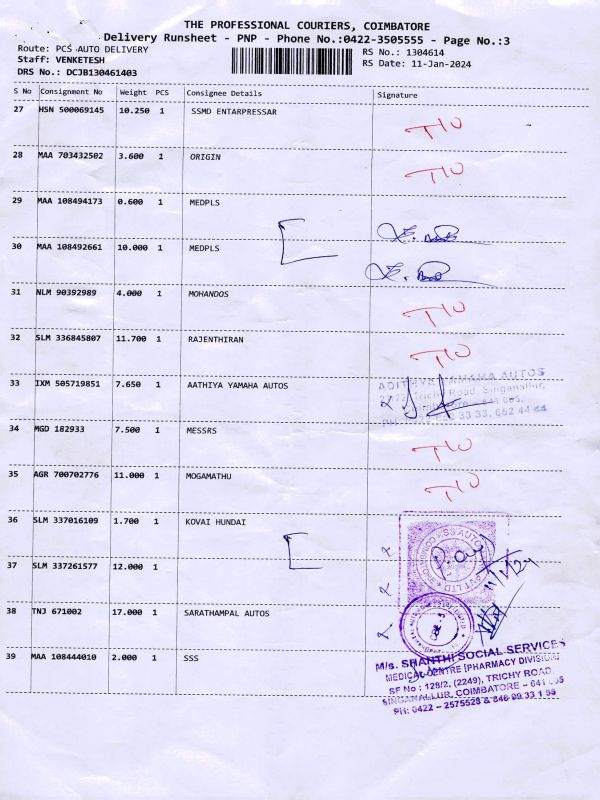 THE PROFESSIONAL COURIERS, COIMBATORE
Delivery Runsheet - PNP - Phone No.:0422-3505555 - Page No.:3
Route: PCS AUTO DELIVERY
Staff: VENKETESH
DRS No.: DCJB130461403
RS No.: 1304614
RS Date: 11-Jan-2024
S No Consignment No Weight PCS Consignee Details Signature
27 HSN 500069145 10.250 1 SSMD ENTARPRESSAR
28 MAA 703432502 3.600 1 ORIGIN
29 MAA 108494173 0.600 1 MEDPLS
30 MAA 108492661 10.000 1 MEDPLS
31 NLM 90392989 4.000 1 MOHANDOS
32 SLM 336845807 11.700 1 RAJENTHIRAN
33 IXM 505719851 7.650 1 AATHIYA YAMAHA AUTOS
ADITHYA YAMAHA AUTOS
Trichy Road, Singanallur,
34 MGD 182933 7.500 1 MESSRS
35 AGR 700702776 11.000 1 MOGAMATHU
36 SLM 337016109 1.700 1 KOVAI HUNDAI
37 SLM 337261577 12.000 1
38 TNJ 671002 17.000 1 SARATHAMPAL AUTOS
39 MAA 108444010 2.000 1 SSS
M/s. SHANTHI SOCIAL SERVICES
MEDICAL CENTRE [PHARMACY DIVISION]
SF No : 128/2, (2249), TRICHY ROAD
SINGANALLUR, COIMBATORE - 641
PH: 0422 - 2575528 &